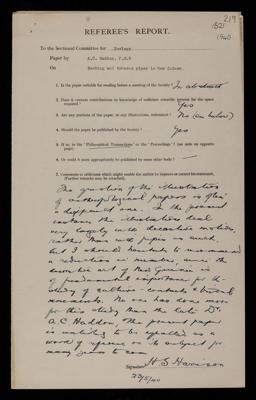 219
(1940)
REFEREE'S REPORT.
To the Sectional Committee for Zoology
Paper by A.C. Haddon, F.R.S
On Smoking and tobacco pipes in New Guinea.
1. Is the paper suitable for reading before a meeting of the Society? In abstract
2. Does it contain contributions to knowledge of sufficient scientific interest for the space required? Yes
3. Are any portions of the paper, or any illustrations, redundant? No (see below)
4. Should the paper be published by the Society? Yes
5. If so, in the "Philosophical Transactions" or the "Proceedings" (see note on opposite page)
6. Or could it more appropriately be published by some other body? —
7. Comments or criticisms which might enable the author to improve or correct his statement. (Further remarks may be attached).
The question of the illustration
of anthropological papers is often
a difficult one. In the present
instance the illustrations deal
very largely with decorative motives,
rather than with pipes as such,
but I should hesitate to recommend
a reduction in number, since the
decorative art of New Guinea is
of fundamental importance for the
study of culture-contacts & tribal
movements. No one has done more
for this study than the late Dr.
A. C. Haddon. The present paper
is unlikely to be equalled as a
work of reference on its subject for
many years to come.
Signature H. S. Harrison
22/5/40